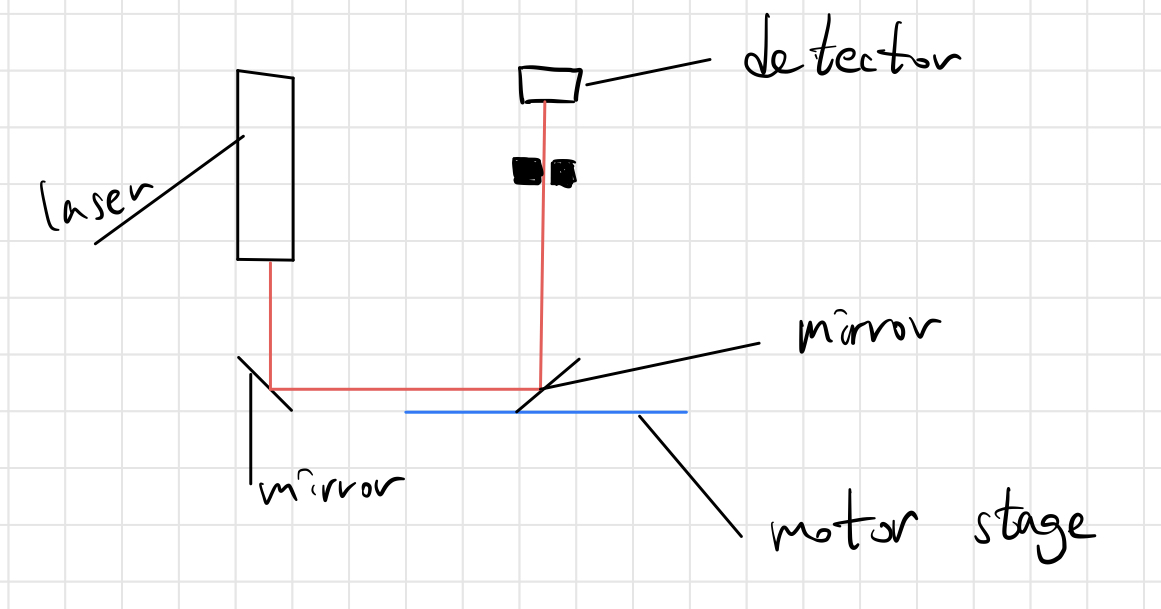 detector
laser
mirror
mirror
motor stage